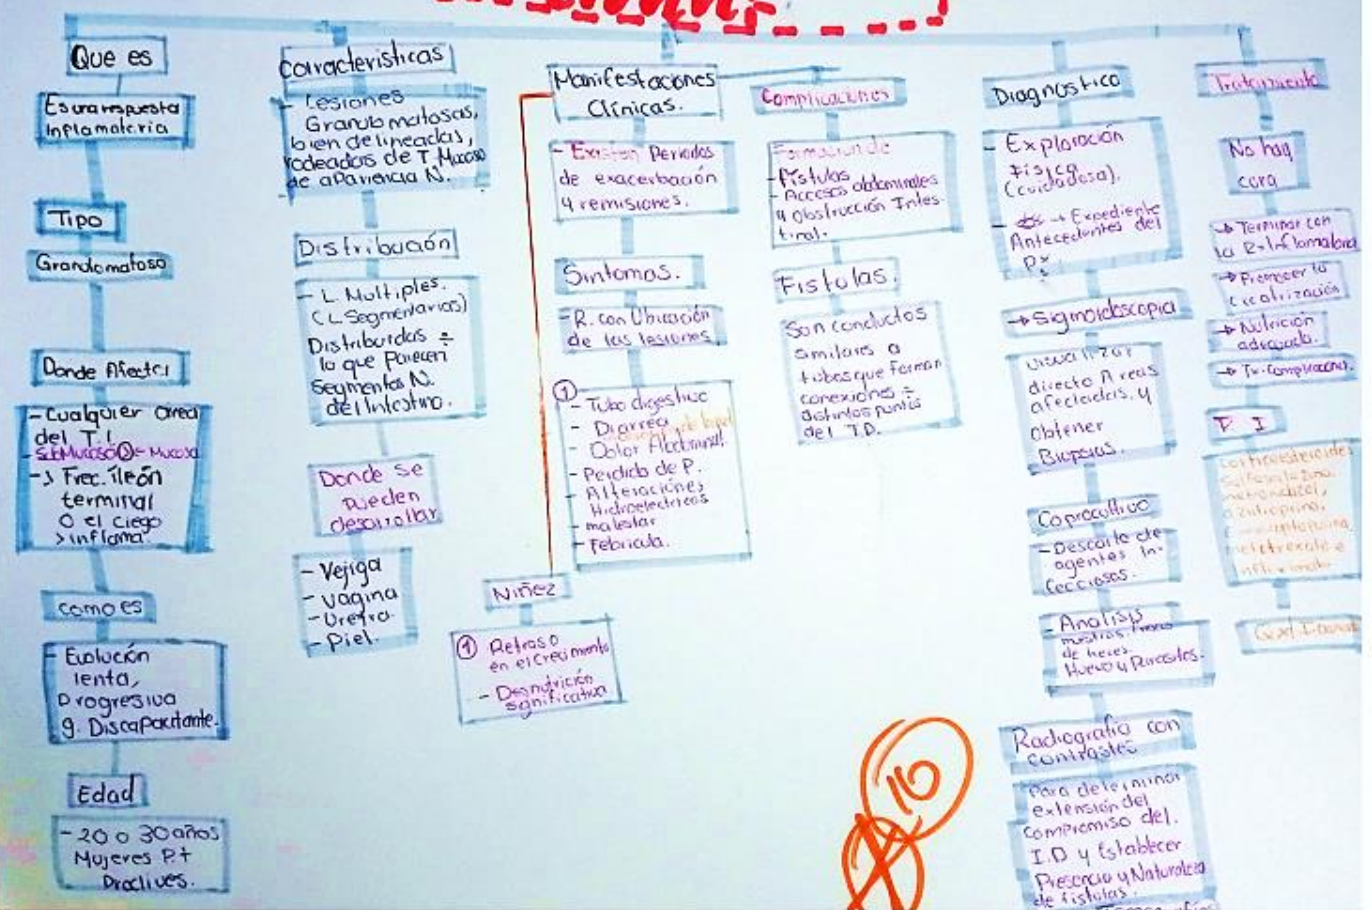 Que es
Es una respuesta
Inflamatoria
Tipo
Granulomatoso
Donde Afecta
- Cualquier area
del T.I
- SubMucosa = Mucosa
-> Frec. íleón
terminal
O el ciego
> inflama
como es
- Evolución
lenta,
Progresiva
g. Discapacitante.
Edad
- 20 o 30 años
Mujeres P.+
Proclives.
Caracteristicas
- Lesiones
Granulomatosas,
bien delineadas,
rodeadas de T. Mucoso
de aPariencia N.
Distribución
- L. Multiples.
(L Segmentarias)
Distribuidas ÷
lo que Parecen
Segmentos N.
del Intestino.
Donde se
pueden
desarrollar
- Vejiga
- vagina
- Uretra.
- Piel.
Manifestaciones
Clínicas.
- Existen Periodos
de exacerbación
y remisiones.
Sintomas.
- R. con Ubicación
de las lesiones
①
- Tubo digestivo
- Diarrea
- Dolor Abdominal.
- Perdida de P.
- Alteraciones
Hidroelectricos
- malestar
- Febricula.
Niñez
① Retraso
en el Crecimiento
- Desnutrición
significativa
Complicaciones
Formacion de
- Fístulas
- Accesos abdominales
y Obstrucción Intes
tinal.
Fistulas.
Son conductos
similares a
tubos que forman
conexiones ÷
distintos puntos
del T.D.
Diagnostico
- Exploración
Física
(cuidadosa).
- → Expediente
Antecedentes del
Px.
→ Sigmoidoscopia
Visualizar
directo Areas
afectadas, y
Obtener
Biopsias.
Coprocultivo
- Descarte de
agentes In-
fecciosos.
- Analisis
muestras frescas
de heces.
Huevo y Parasitos.
Radiografia con
contrastes
Para determinar
extensión del
compromiso del.
I.D y Establecer
Presencia y Naturaleza
de fistulas.
Tratamiento
No hay
cura
→ Terminar con
la R. Inflamatoria
→ Promover la
Cicatrización
→ Nutrición
adecuada.
→ Tx. Complicacion.
T. I
Corticoesteroides
Sulfasalazina,
metronidazol,
azatioprina,
metotrexate e
infliximab
10